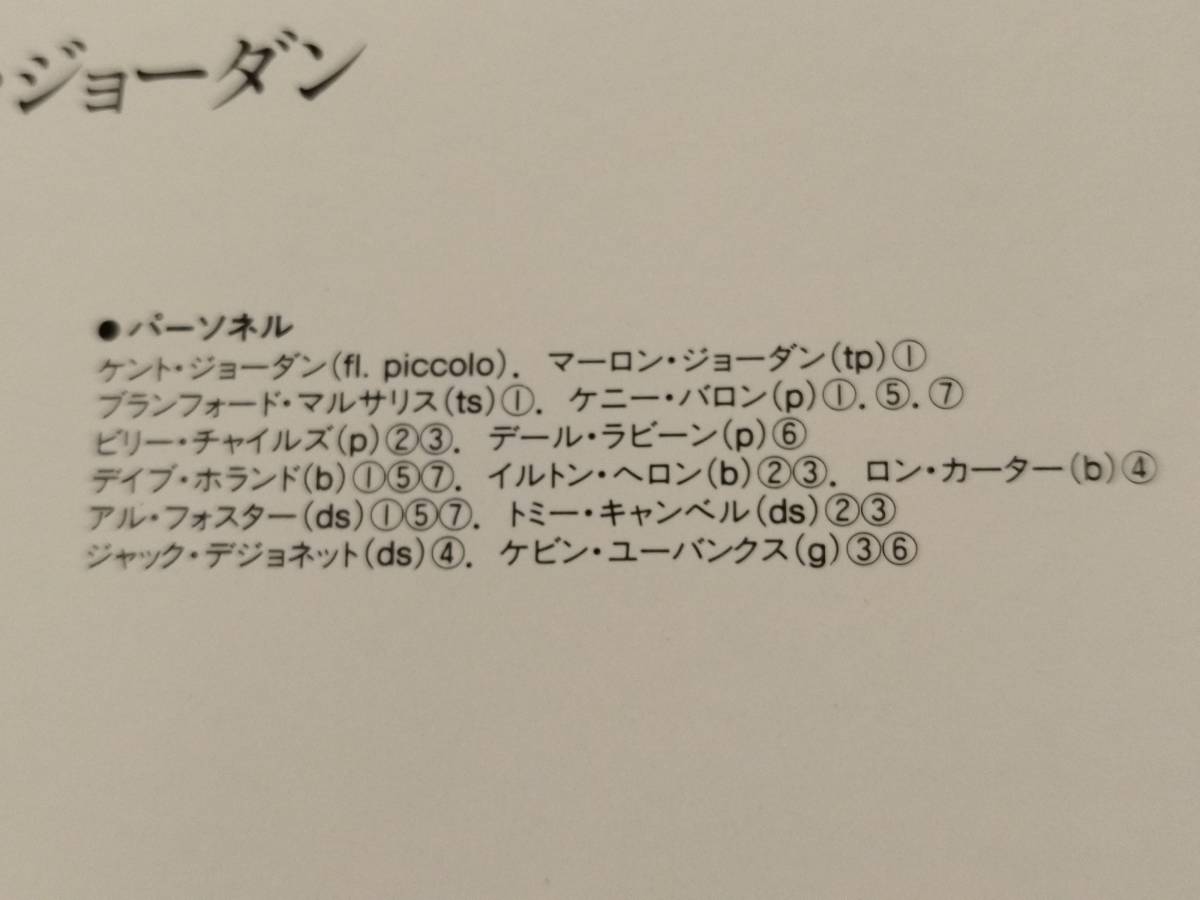 ・ジョーダン
●パーソネル
ケント・ジョーダン(fl. piccolo)． マーロン・ジョーダン(tp)①
ブランフォード・マルサリス(ts)①． ケニー・バロン(p)①．⑤．⑦
ビリー・チャイルズ(p)②③． デール・ラビーン(p)⑥
デイブ・ホランド(b)①⑤⑦． イルトン・ヘロン(b)②③． ロン・カーター(b)④
アル・フォスター(ds)①⑤⑦． トミー・キャンベル(ds)②③
ジャック・デジョネット(ds)④． ケビン・ユーバンクス(g)③⑥